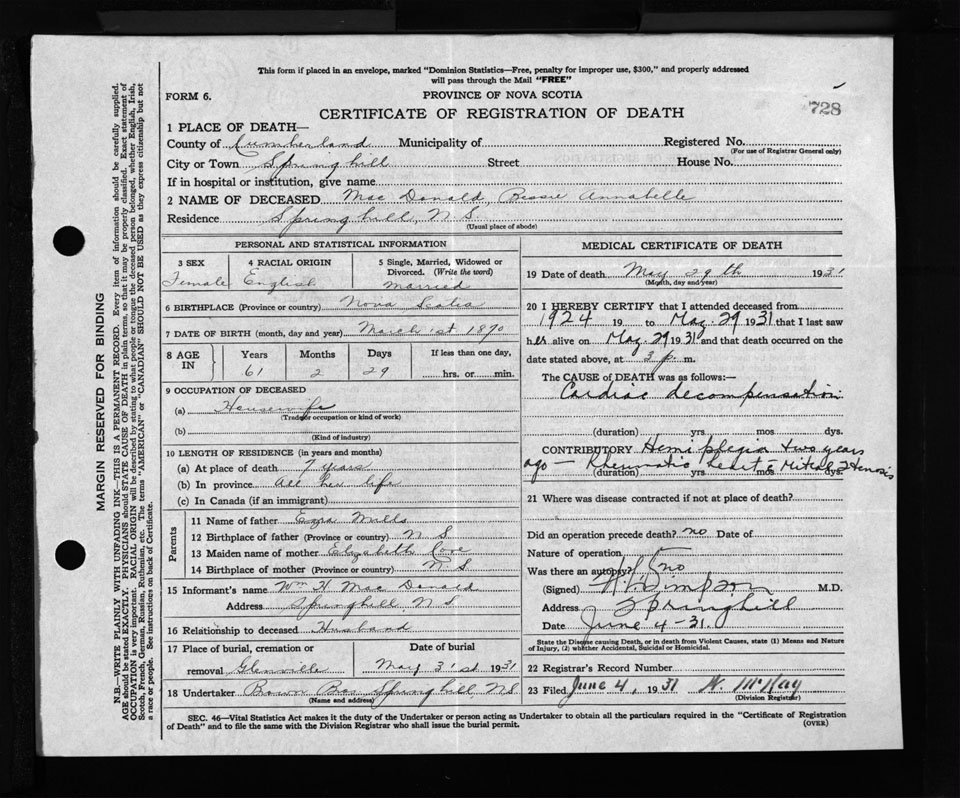 This form if placed in an envelope, marked "Dominion Statistics—Free, penalty for improper use, $300," and properly addressed
will pass through the Mail "FREE"
FORM 6.
PROVINCE OF NOVA SCOTIA
728
CERTIFICATE OF REGISTRATION OF DEATH
1 PLACE OF DEATH—
County of Cumberland Municipality of Registered No.
(For use of Registrar General only)
City or Town Springhill Street House No.
If in hospital or institution, give name
2 NAME OF DECEASED Mac Donald, Bessie Annabelle
Residence Springhill, N.S.
(Usual place of abode)
PERSONAL AND STATISTICAL INFORMATION
3 SEX 4 RACIAL ORIGIN 5 Single, Married, Widowed or
Divorced. (Write the word)
Female English Married
6 BIRTHPLACE (Province or country) Nova Scotia
7 DATE OF BIRTH (month, day and year) March 1st 1870
8 AGE IN Years Months Days If less than one day,
61 2 29 hrs. or min.
9 OCCUPATION OF DECEASED
(a) Housewife
(Trade, occupation or kind of work)
(b)
(Kind of industry)
10 LENGTH OF RESIDENCE (in years and months)
(a) At place of death 7 years
(b) In province All her life
(c) In Canada (if an immigrant)
Parents
11 Name of father Ezra Mills
12 Birthplace of father (Province or country) N S
13 Maiden name of mother Elizabeth
14 Birthplace of mother (Province or country) N S
15 Informant's name Wm H Mac Donald
Address Springhill, N S
16 Relationship to deceased Husband
17 Place of burial, cremation or Date of burial
removal Glenville May 31st 1931
18 Undertaker Brown Bros Springhill NS
(Name and address)
MEDICAL CERTIFICATE OF DEATH
19 Date of death May 29th 1931
(Month, day and year)
20 I HEREBY CERTIFY that I attended deceased from
1924 19 to May 29 1931 that I last saw
her alive on May 29 1931 and that death occurred on the
date stated above, at 3 p. m.
The CAUSE of DEATH was as follows:—
Cardiac decompensation
(duration) yrs mos dys.
CONTRIBUTORY Hemiplegia two years
ago — Rheumatic heart Mitral Stenosis
(duration) yrs mos dys.
21 Where was disease contracted if not at place of death?
Did an operation precede death? no Date of
Nature of operation
Was there an autopsy? no
(Signed) Simpson M.D.
Address Springhill
Date June 4 - 31.
State the Disease causing Death, or in death from Violent Causes, state (1) Means and Nature
of Injury, (2) whether Accidental, Suicidal or Homicidal.
22 Registrar's Record Number
23 Filed June 4, 1931 N. McKay
(Division Registrar)
SEC. 46—Vital Statistics Act makes it the duty of the Undertaker or person acting as Undertaker to obtain all the particulars required in the "Certificate of Registration
of Death" and to file the same with the Division Registrar who shall issue the burial permit.
(OVER)
MARGIN RESERVED FOR BINDING
N.B.—WRITE PLAINLY WITH UNFADING INK—THIS IS A PERMANENT RECORD. Every item of information should be carefully supplied.
AGE should be stated EXACTLY. PHYSICIANS should STATE CAUSE OF DEATH in plain terms, so that it may be properly classified. Exact statement of
OCCUPATION is very important. RACIAL ORIGIN will be described by stating to what people or tongue the deceased person belonged, whether English, Irish,
Scotch, French, German, Russian, Ruthenian, etc. The terms "AMERICAN" or "CANADIAN" SHOULD NOT BE USED as they express citizenship but not
a race or people. See instructions on back of Certificate.